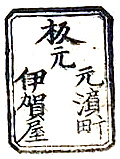 板元
元濵町
伊賀屋